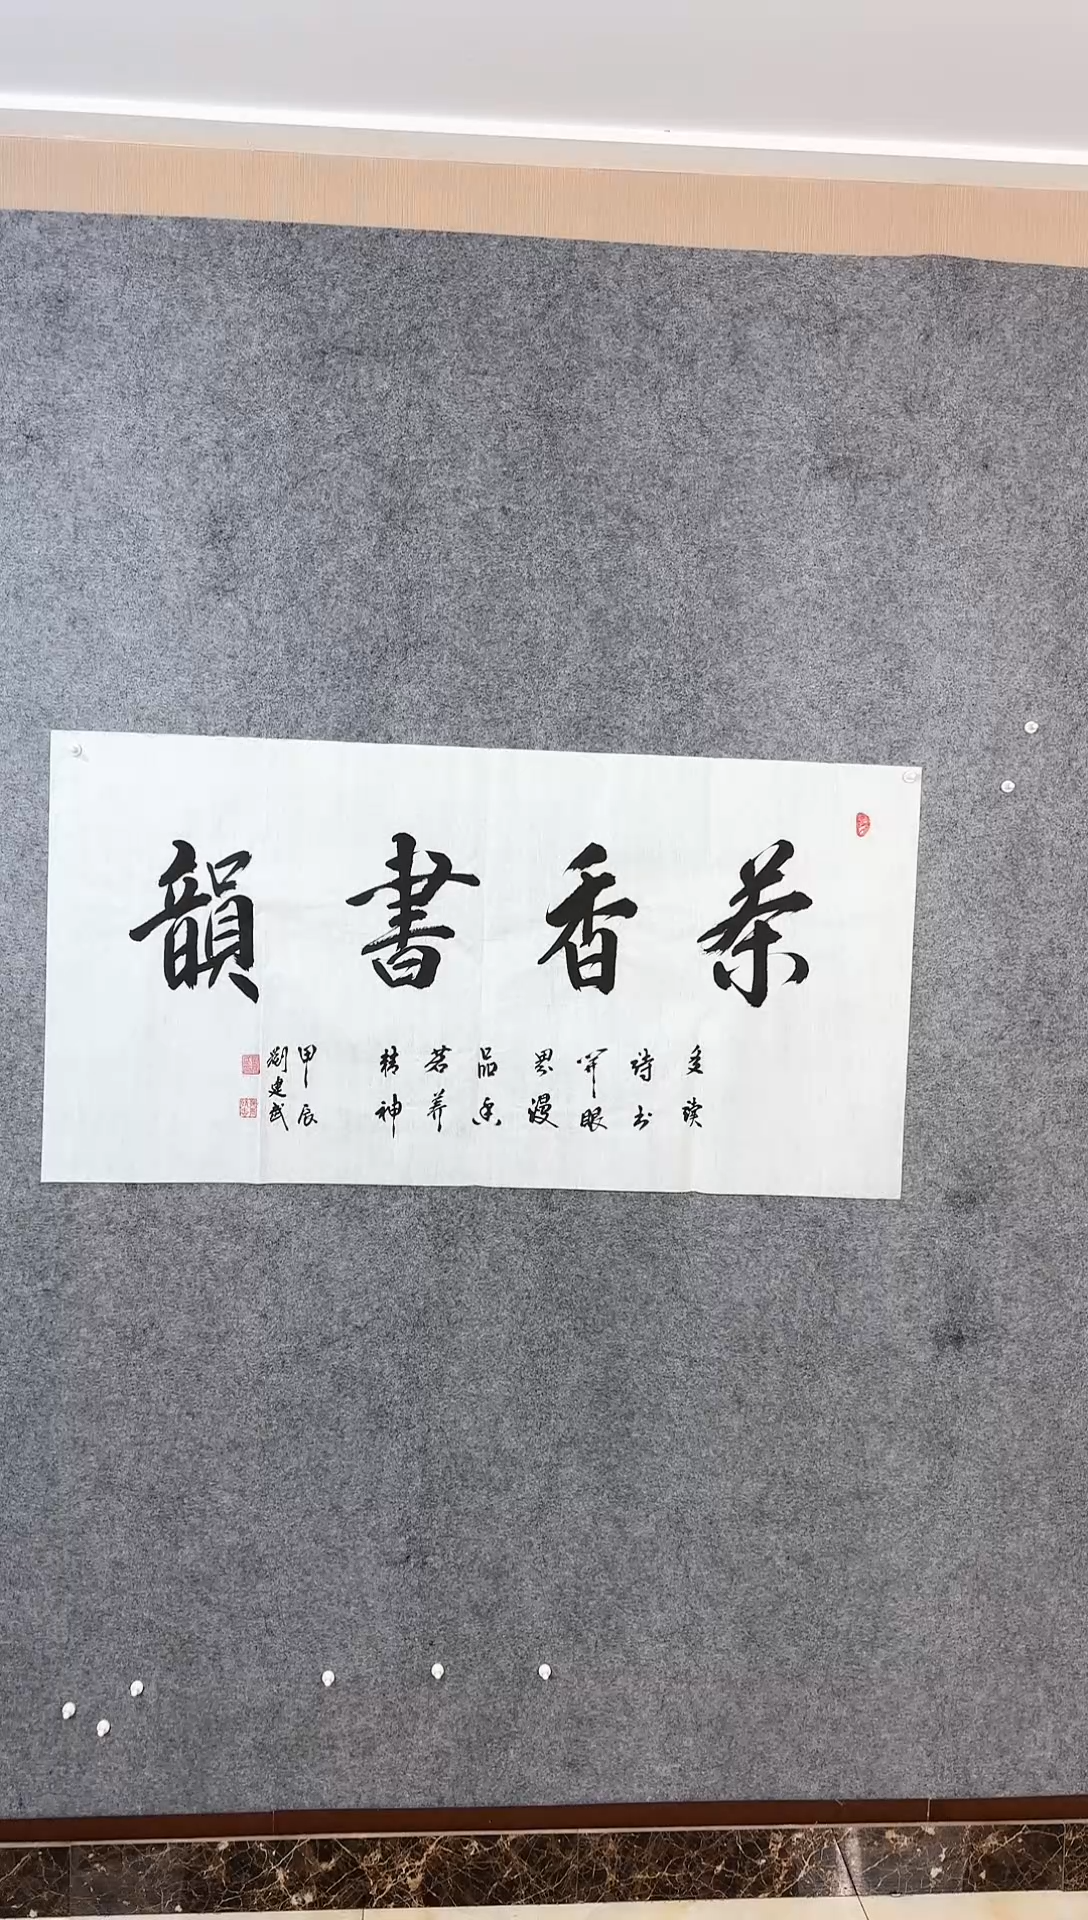 茶香書韻
多读
诗书
開眼
界漫
品香
茗养
精神
甲辰
劉建武